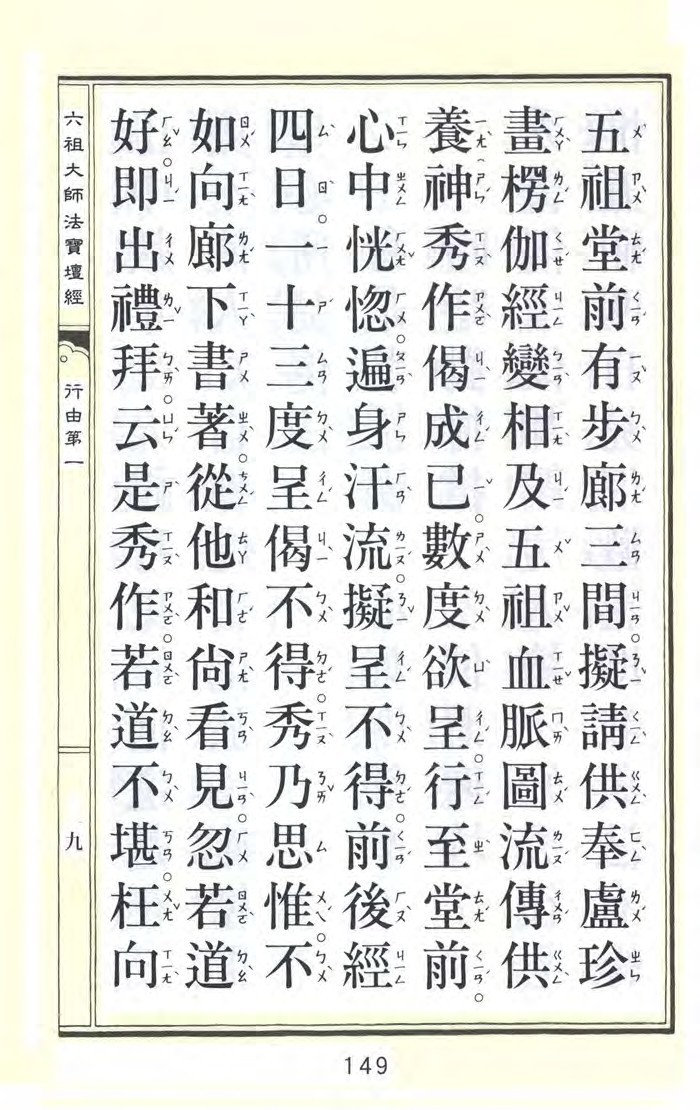 五祖堂前有步廊三間。擬請供奉盧珍
畫楞伽經變相及五祖血脈圖流傳供
養神秀作偈成已。數度欲呈。行至堂前。
心中恍惚。遍身汗流。擬呈不得。前後經
四日。一十三度呈偈不得。秀乃思惟。不
如向廊下書著。從他和尚看見。忽若道
好。即出禮拜。云是秀作。若道不堪。枉向
六祖大師法寶壇經
行由第一
九
149